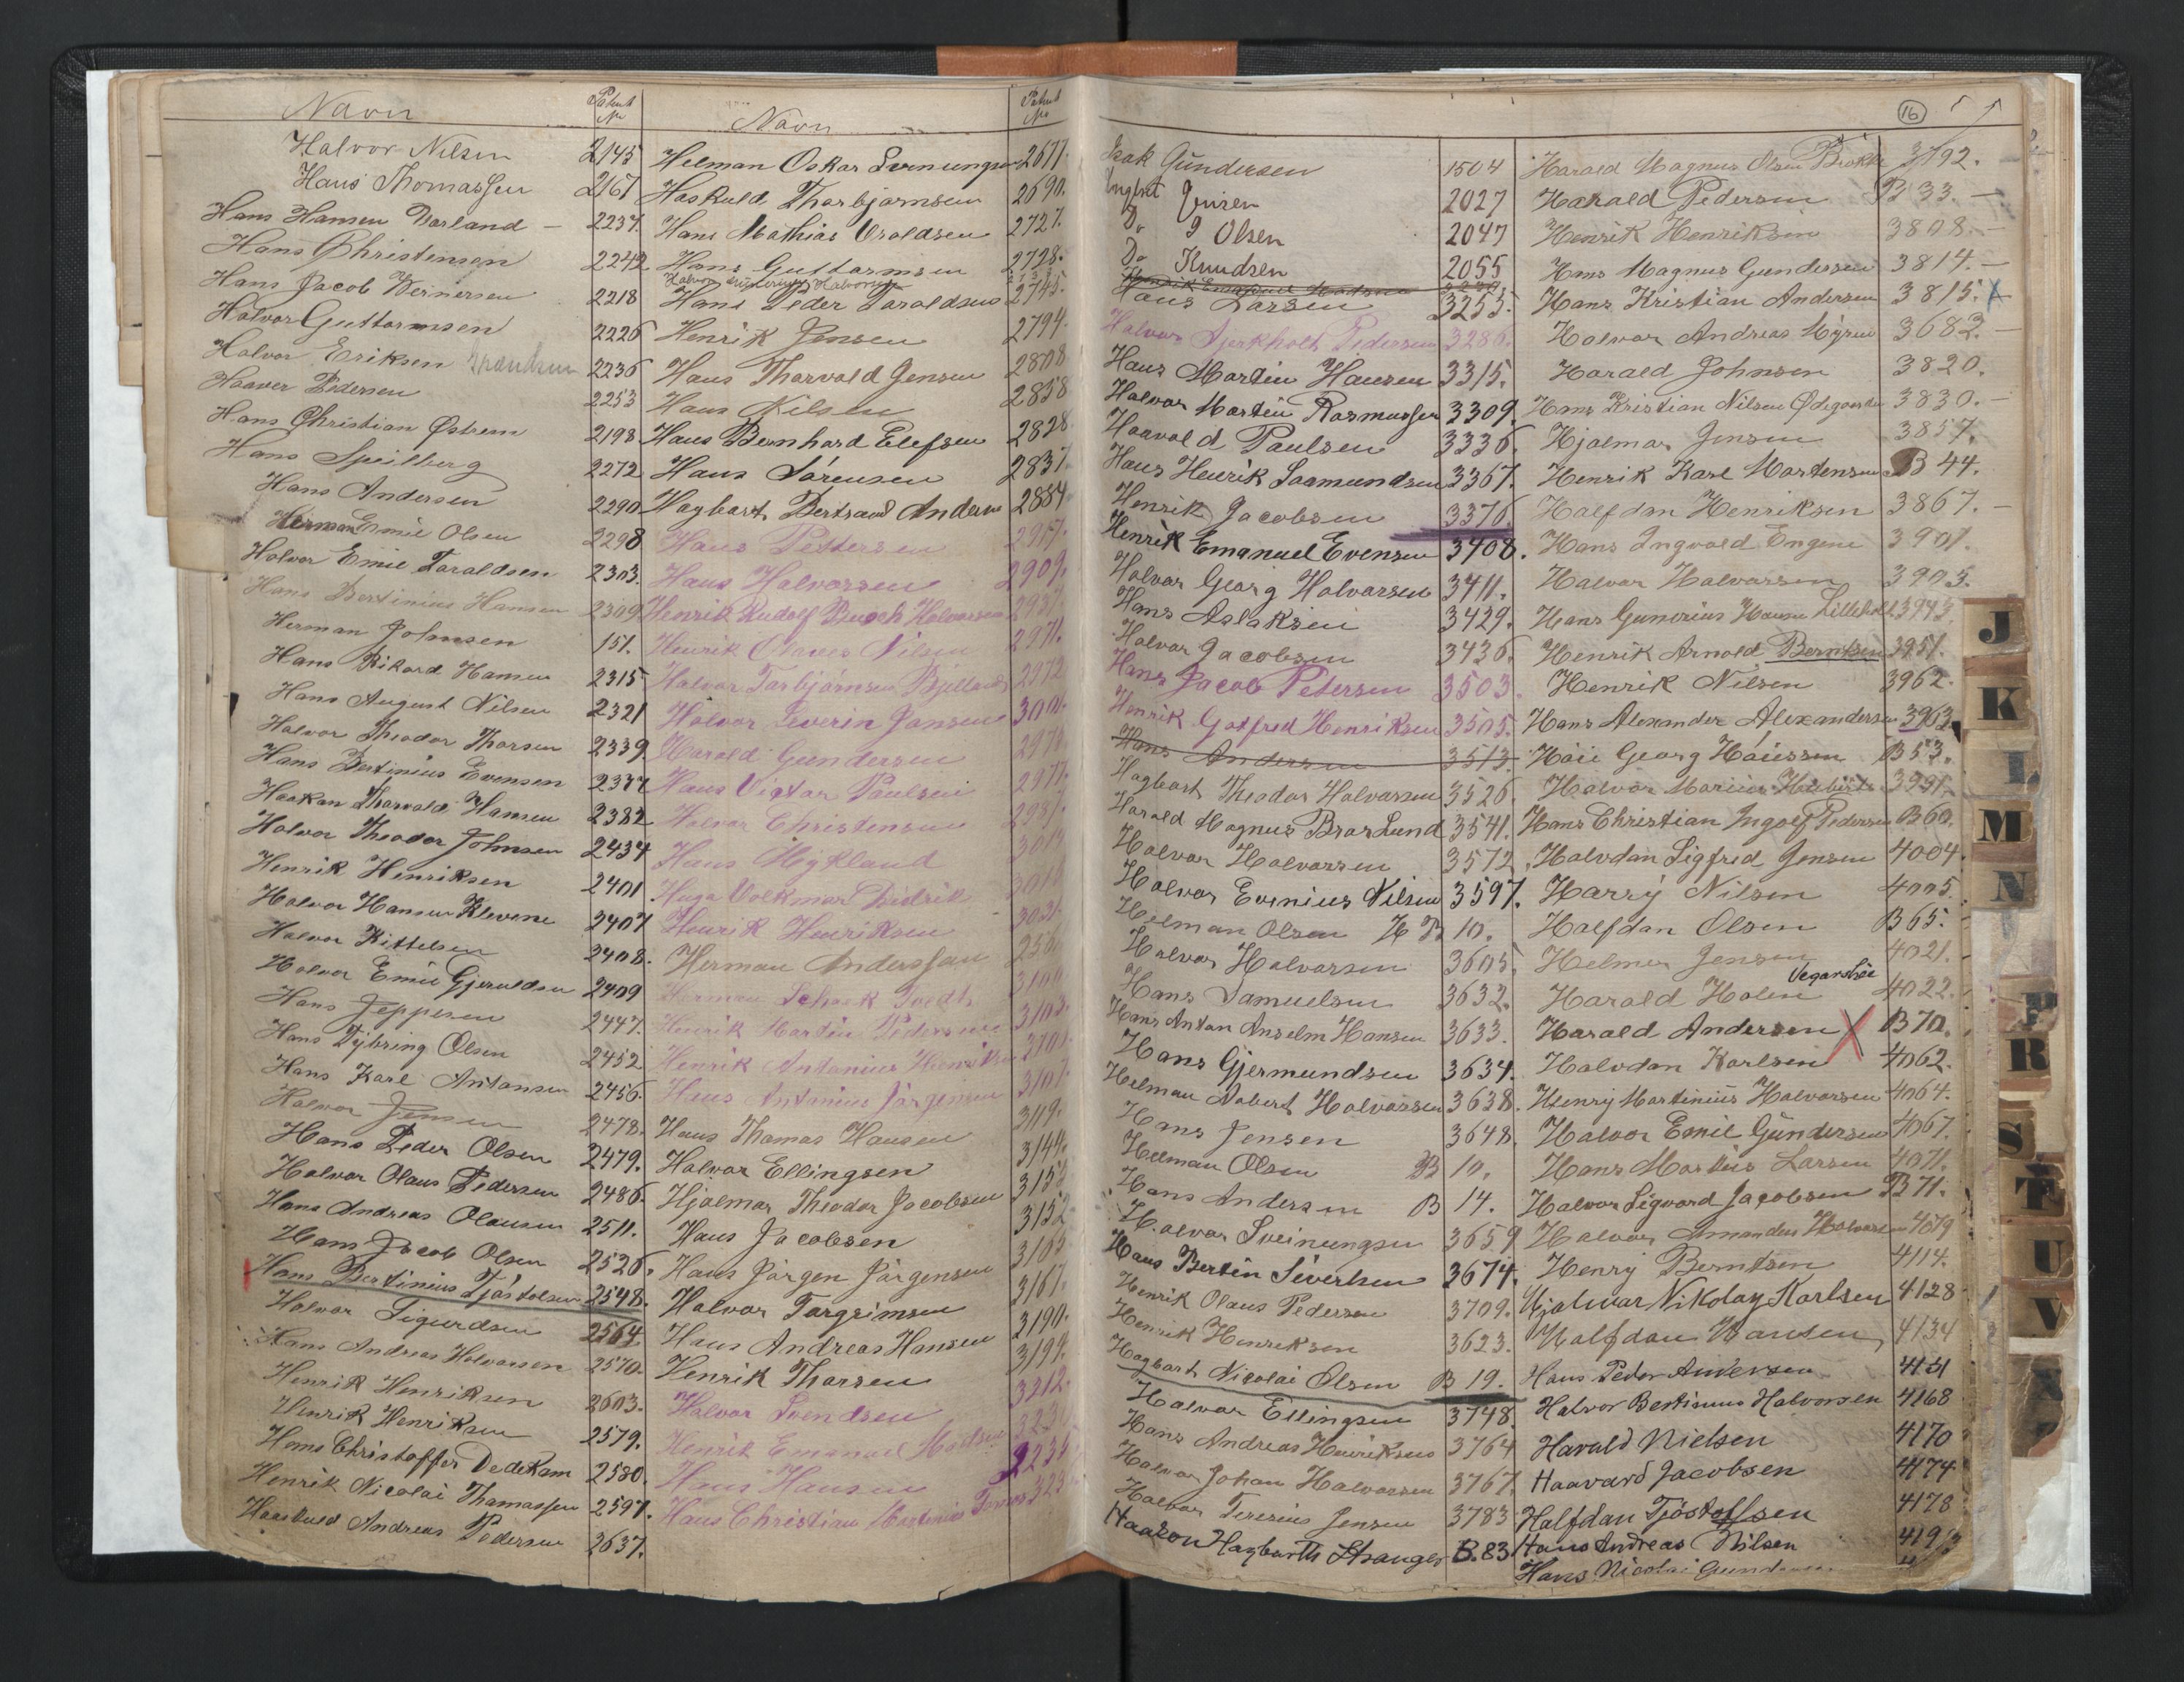 Navn Patent No
Halvor Nilsen 2145
Hans Thomassen 2167
Hans Hansen Varland 2237.
Hans Christensen 2242
Hans Jacob Wernersen 2218
Halvor Guttormsen 2226
Halvor Eriksen 2236
Haaver Pedersen 2253
Hans Christian Østrem 2198
Hans Speilberg 2272
Hans Andersen 2290
Herman Emil Olsen 2298
Halvor Emil Taraldsen 2303.
Hans Bertinius Hansen 2309
Herman Johnsen 151.
Hans Rikard Hansen 2315
Hans August Nilsen 2321
Halvor Theodor Thorsen 2339
Hans Bertinius Evensen 2337
Haakon Tharvald Hansen 2382
Halvor Theodor Johnsen 2434
Henrik Henriksen 2401
Halvor Hansen Klevene 2407
Halvor Kittelsen 2408.
Halvor Emil Gjeruldsen 2409
Hans Jeppesen 2447.
Hans Dybring Olsen 2452
Hans Karl Antonsen 2456.
Halvor Jensen 2478.
Hans Peder Olsen 2479.
Halvor Olaus Pedersen 2486.
Hans Andreas Olausen 2511.
Hans Jacob Olsen 2526.
Hans Bertinius Tjøstolsen 2548.
Halvor Sigurdsen 2564
Hans Andreas Halvorsen 2570.
Henrik Henriksen 2603.
Henrik Henriksen 2579.
Hans Christoffer Dedekam 2580.
Henrik Nicolai Thomassen 2597.
Haaskuld Andreas Pedersen 2637.
Navn Patent No
Helman Oskar Svenungsen 2677.
Haskuld Thorbjørnsen 2690.
Hans Mathias Uraldsen 2727.
Hans Guttormsen 2728.
Hans Peder Taraldsen 2745.
Henrik Jensen 2794.
Hans Tharvald Jensen 2808
Hans Nilsen 2858
Hans Bernhard Elefsen 2828
Hans Sørensen 2837.
Hagbart Bertrand Andersen 2884
Hans Pettersen 2917.
Hans Halvorsen 2909.
Henrik Rudolf Busch Halvorsen 2937.
Henrik Olaves Nilsen 2971.
Halvor Torbjørnsen Bjelland 2972
Halvor Severin Jansen
Harald Gundersen
Hans Victor Paulsen 2977.
Halvor Christensen
Hans Mykland
Hugo Volkmar Didrik
Henrik Henriksen
Herman Anderssan
Herman Schack
Henrik Martin Pedersen 3103.
Henrik Antonius Henriksen
Hans Antonius Jørgensen 3107.
Hans Thomas Hansen 3119.
Halvor Ellingsen 3144.
Hjalmar Theodor Jacobsen
Hans Jacobsen 3152
Hans Jørgen Jørgensen
Halvor Torgrimsen 3167.
Hans Andreas Hansen 3190.
Henrik Thorsen 3199.
Halvor Svendsen 3212.
Henrik Emanuel Madsen
Hans Hansen
Hans Christian Martinius
16
Isak Gundersen 1504
Inghst Jensen 2027
Do J Olsen 2047
Do Knudsen 2055
Hans Larsen 3255.
Halvor Bjerkholt Pedersen 3286.
Hans Martin Hansen 3315.
Halvor Martin Rasmussen 3309.
Haavald Paulsen 3336.
Hans Henrik Saamundsen 3367.
Henrik Jacobsen 3376.
Henrik Emanuel Evensen 3408.
Halvor Georg Halvorsen 3411.
Hans Aslaksen 3429.
Halvor Jacobsen 3436.
Hans Jacob Petersen 3503.
Henrik Gotfred Henriksen 3505.
Hans Andersen 3513.
Hagbart Theodor Halvorsen 3526.
Harald Magnus Bror Lund 3541.
Halvor Halvorsen 3572.
Halvor Evenius Nilsen 3597.
Helman Olsen B 10.
Halvor Halvorsen 3605.
Hans Samuelsen 3632.
Hans Anton Anselm Hansen 3633.
Hans Gjermundsen 3634.
Helman Nobert Halvorsen 3638.
Hans Jensen 3648.
Helman Olsen B 10.
Hans Andersen B 14.
Halvor Sveinungsen 3659
Hans Bertin Siverlsen 3674.
Henrik Olaus Pedersen 3709.
Henrik Henriksen 3623.
Hagbart Nicolai Olsen B 19.
Halvor Ellingsen 3748.
Hans Andreas Henriksen 3764
Halvor Johan Halvorsen 3767.
Halvor Teresius Jensen 3783
Haakon Hagbarth Stranger B.83
Harald Magnus Olsen Brække 3792.
Harald Pedersen B 33.
Henrik Henriksen 3808.
Hans Magnus Gundersen 3814.
Hans Kristian Andersen 3815.
Halvor Andreas Myren 3682.
Harald Johnsen 3820.
Hans Kristian Nilsen Ødegaarden 3830.
Hjalmar Jensen 3857.
Henrik Karl Mortensen B 44.
Halfdan Henriksen 3867.
Hans Ingvald Engene 3901.
Halvor Halvorsen 3905.
Hans Gunerius Hansen Lilleholt 3943.
Henrik Arnold Berntsen 3951.
Henrik Nilsen 3962.
Hans Alexander Alexandersen 3963
Haii Georg Haiissen B 53.
Halvor Marius 3991.
Hans Christian Ingolf Pedersen B 60.
Halvdan Sigfred Jensen 4004.
Harry Nilsen 4005.
Halfdan Olsen B 65.
Helmer Jensen 4021.
Harald Holen Vegarshei 4022.
Harald Andersen B 70.
Halvdan Karlsen 4062.
Henry Martinius Halvorsen 4064.
Halvor Emil Gundersen 4067.
Hans Martius Larsen 4071.
Halvor Sigvard Jacobsen B 71.
Halvor Amandus Halvorsen 4079
Henry Berntsen 4114.
Hjalmar Nikolay Karlsen 4128
Halfdan Hansen 4134
Hans Peder Andersen 4141
Halvor Bertinius Halvorsen 4168
Harald Nielsen 4170
Haavard Jacobsen 4174
Halfdan Tjøstolfsen 4178
Hans Andreas Nilsen 4193
Hans Nicolai Gundersen
J
K
L
M
N
P
R
S
T
U
V